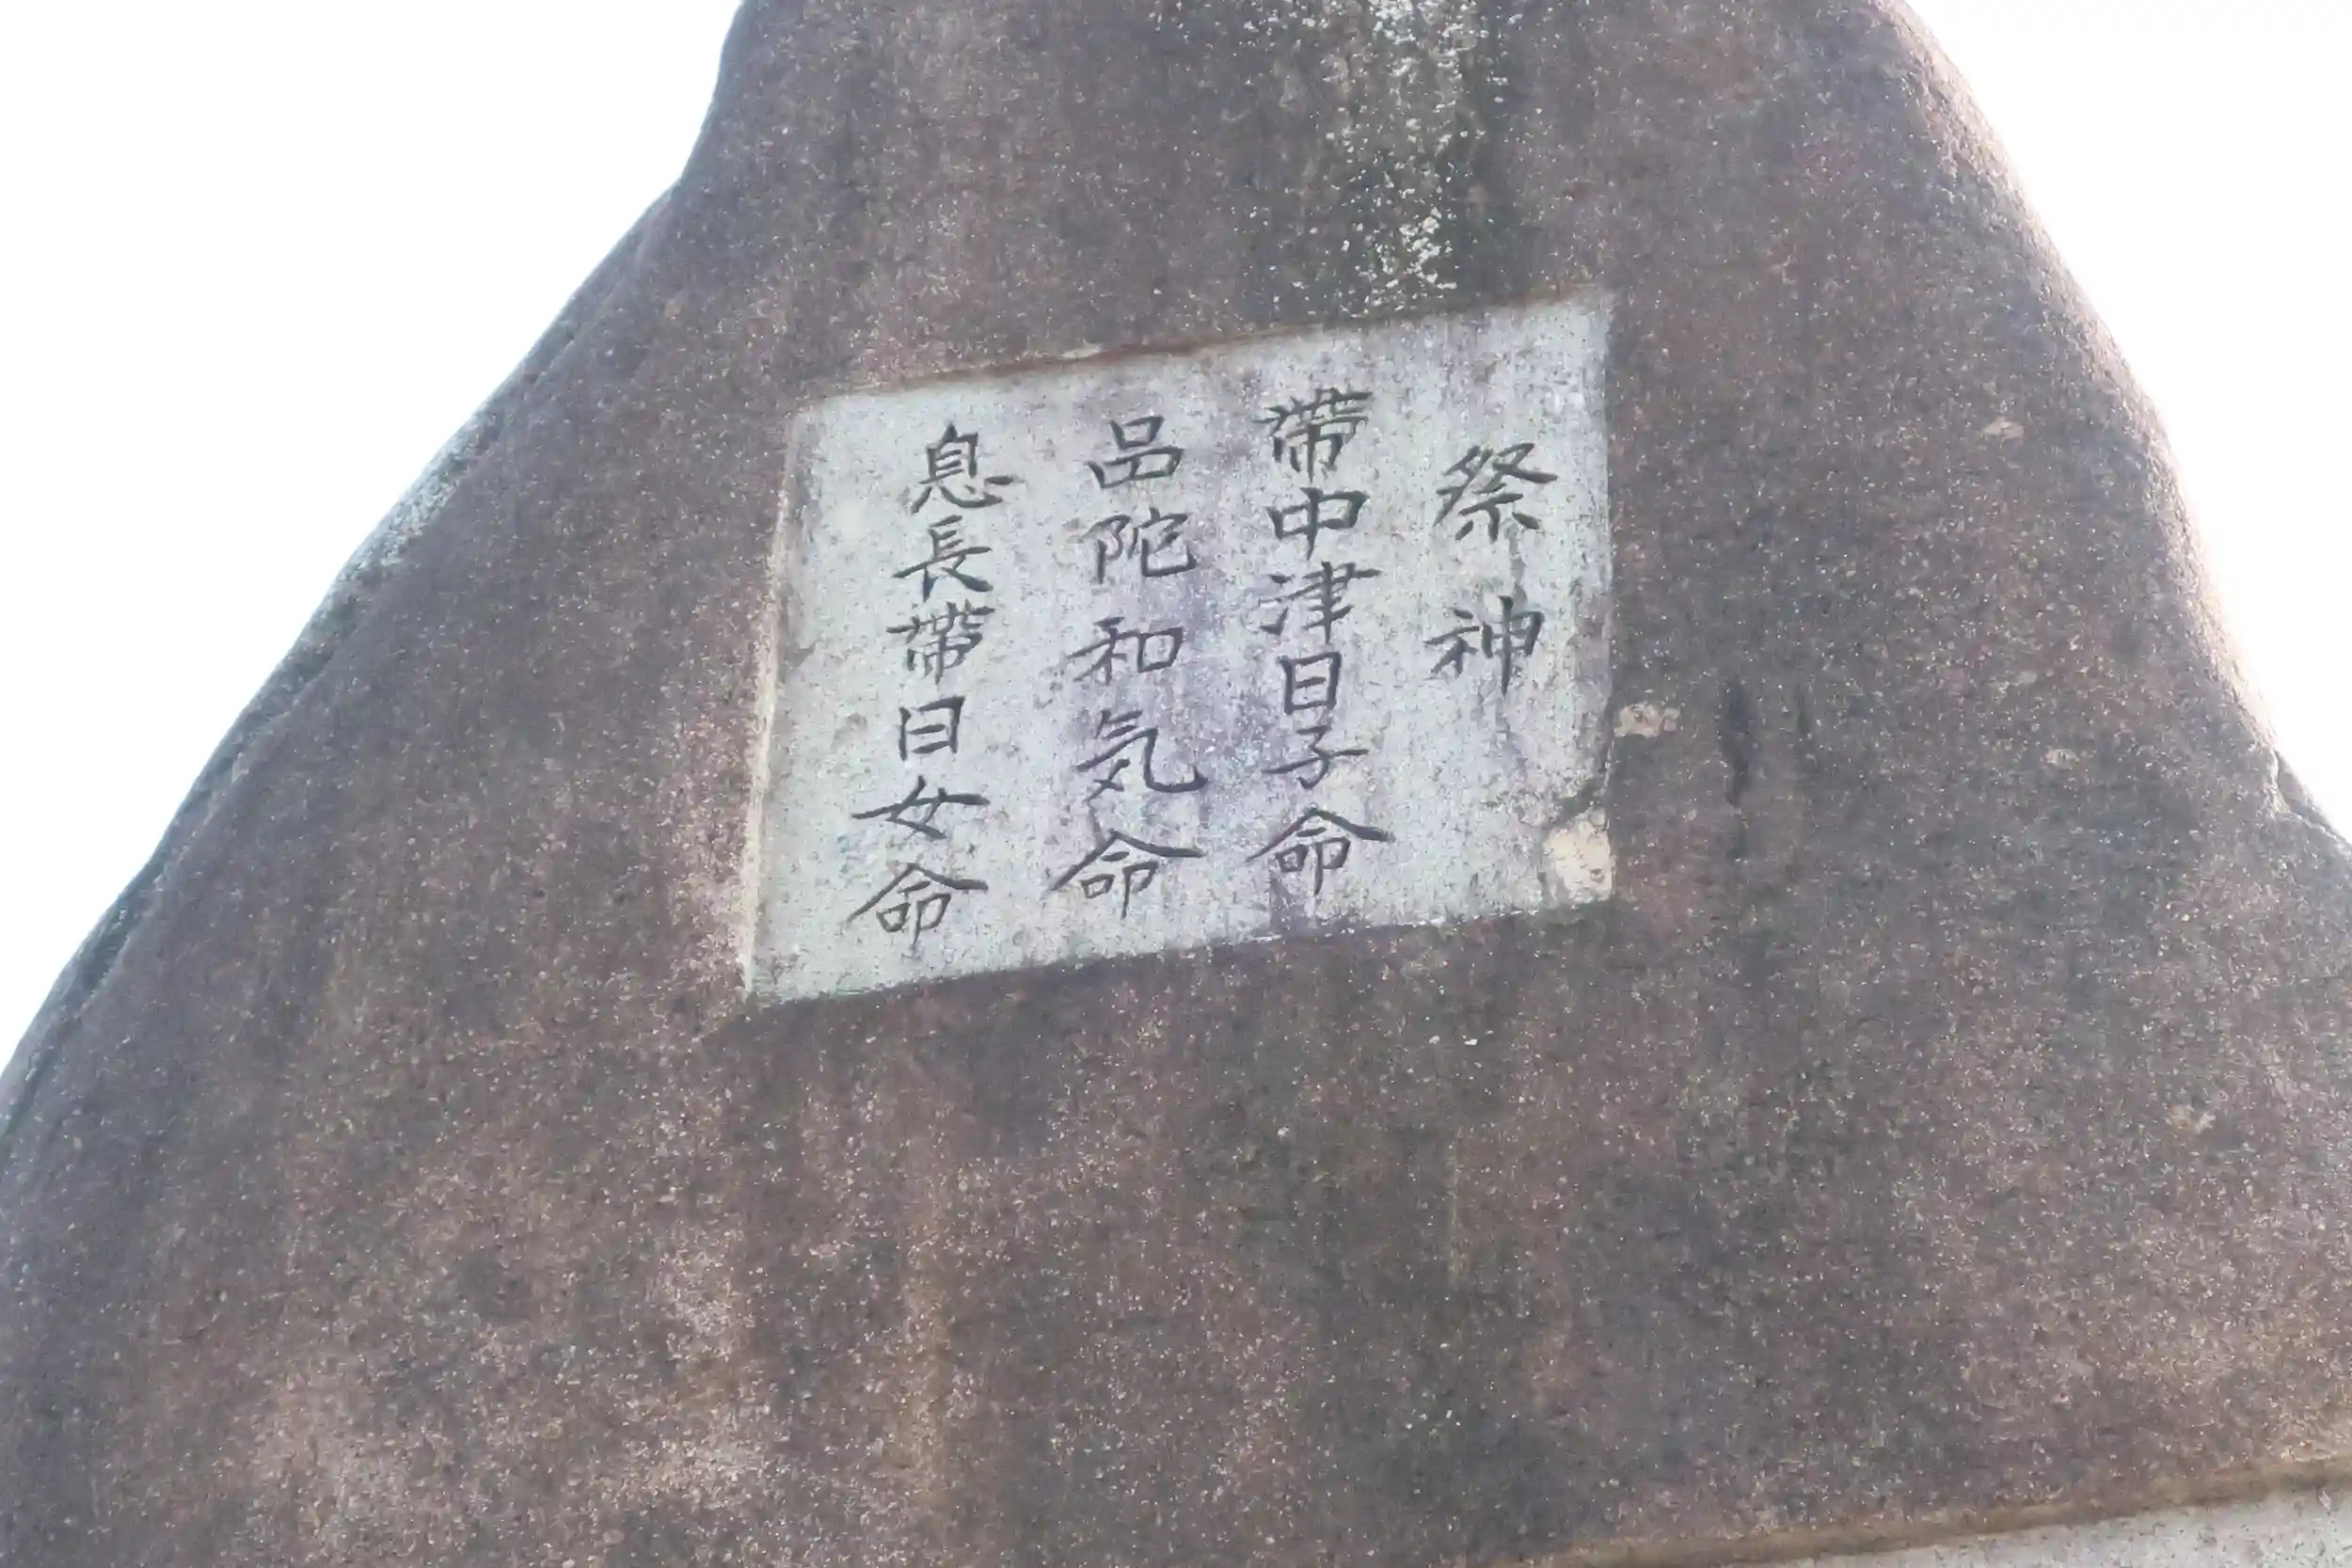 祭神
帶中津日子命
品陀和気命
息長帶日女命